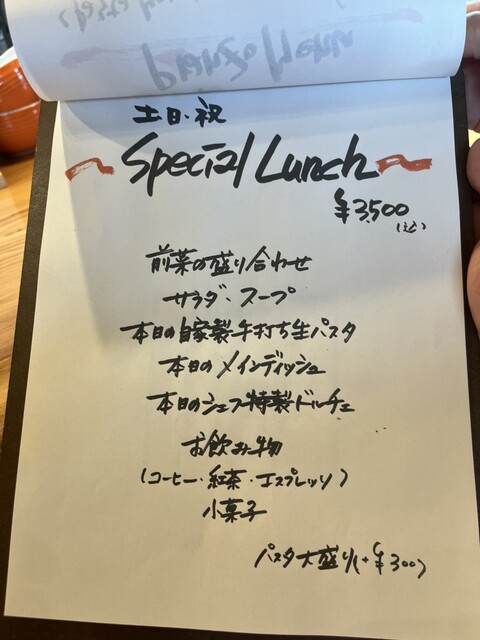 土日・祝
Special Lunch
¥3,500
(込)
前菜の盛り合わせ
サラダ・スープ
本日の自家製手打ち生パスタ
本日のメインディッシュ
本日のシェフ特製ドルチェ
お飲み物
(コーヒー・紅茶・エスプレッソ)
小菓子
パスタ大盛り(+¥300)